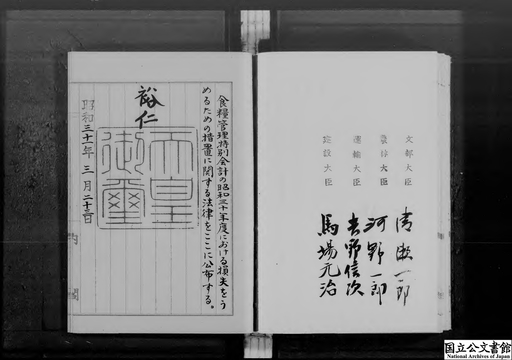 文部大臣
農林大臣
運輸大臣
建設大臣
清瀬一郎
河野一郎
吉野信次
馬場元治
食糧管理特別会計の昭和三十年度における損失をう
めるための措置に関する法律をここに公布する。
裕仁
天皇
御璽
昭和三十一年三月二十三日
内閣
国立公文書館
National Archives of Japan